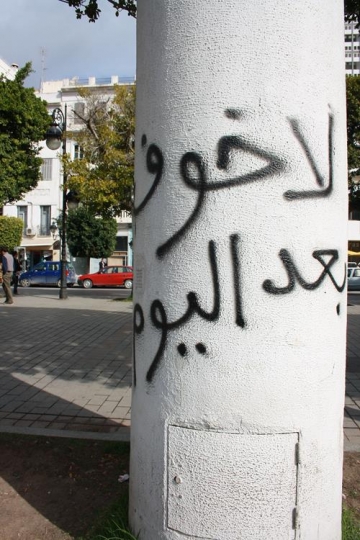 لا خوف
بعد اليوم